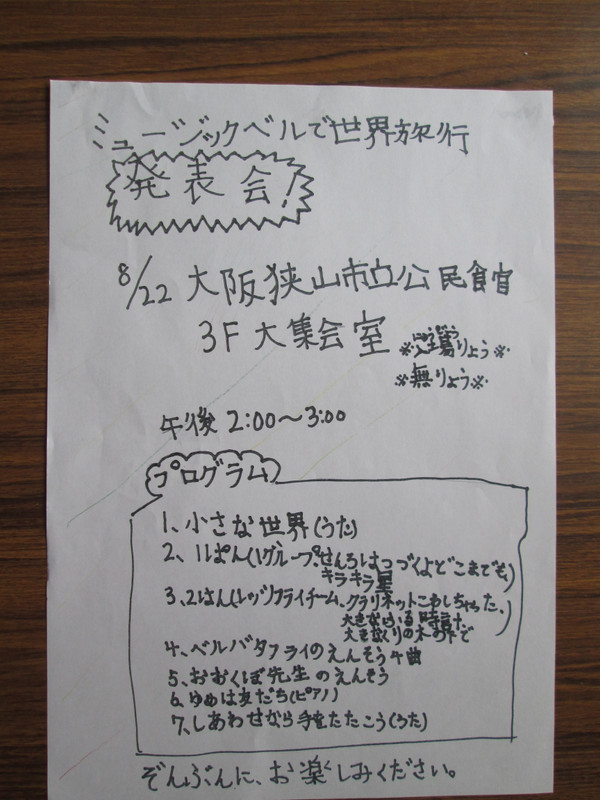 ミュージックベルで世界旅行
発表会!
8/22 大阪狭山市立公民館
3F 大集会室 ※入場りょう※
※無りょう※
午後 2:00〜3:00
プログラム
1、小さな世界(うた)
2、1ぱん(1グループ、せんろはつづくよどこまでも、
キラキラ星)
3、2はん(レッツフライチーム、クラリネットこわしちゃった、
大きなふる時計、
大きなくりの木の下で)
4、ベルバタフライのえんそう4曲
5、おおくぼ先生のえんそう
6、ゆめは友だち(ピアノ)
7、しあわせなら手をたたこう(うた)
ぞんぶんに、お楽しみください。